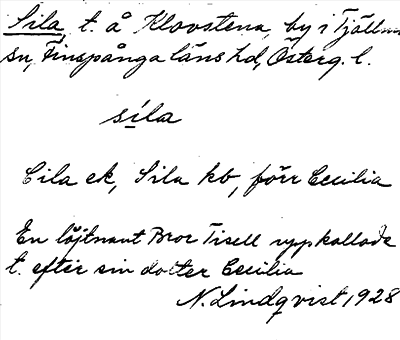 Sila, t. å Klovstena, by i Tjällmo
sn, Finspånga läns hd, Österg. l.
sìla
Cila ek, Sila kb, förr Cecilia
En löjtnant Bror Tisell uppkallade
t. efter sin dotter Cecilia
N. Lindqvist 1928